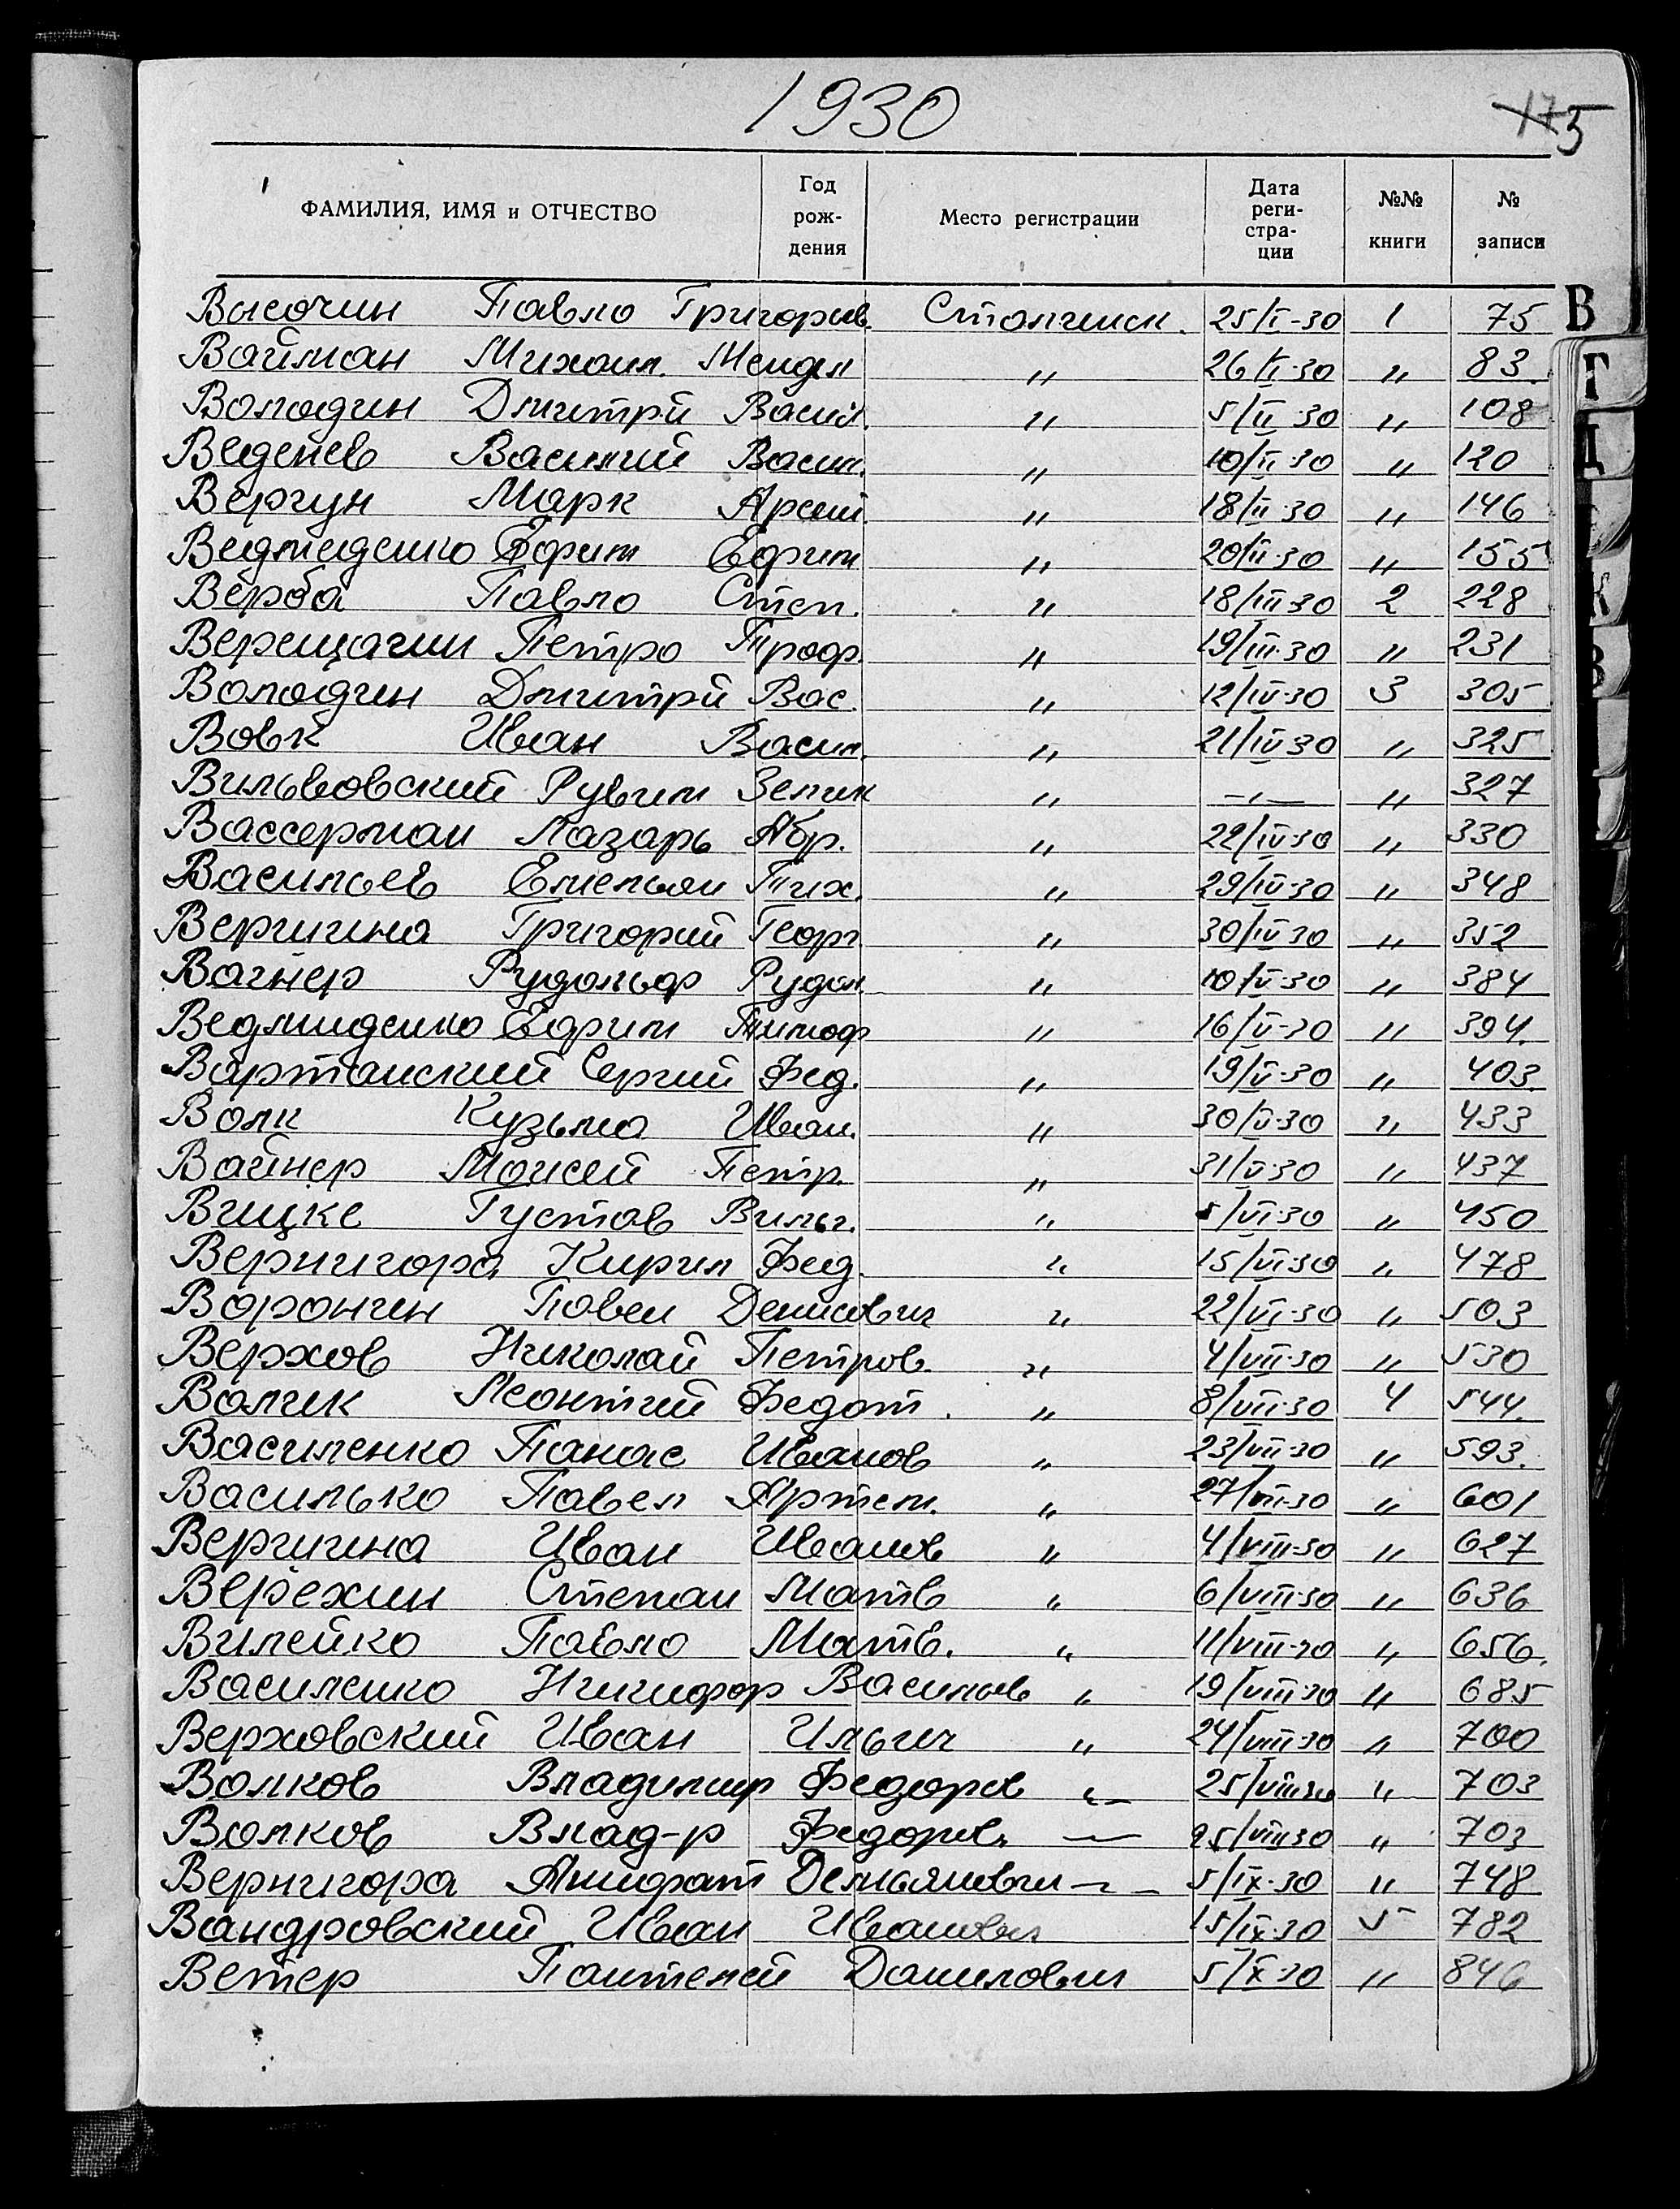 1930
175
ФАМИЛИЯ, ИМЯ и ОТЧЕСТВО Год рож-дения Место регистрации Дата реги-стра-ции №№ книги № записи
Высочин Павло Григорьев. 25/I-30 1 75
В
Вайман Михаил. Мендел " 26/I-30 " 83.
Г
Володин Дмитрй Васил. " 5/II-30 " 108
Веденев Василий Васил. " 10/II-30 " 120
Д
Вергун Марк Арсент. " 18/II-30 " 146
Ведмеденко Ефрим Ефрим " 20/II-30 " 155
Верба Павло Степ. " 18/III-30 2 228
К
Верещагин Петро Троф. " 19/III-30 " 231
Володин Дмитрй Вас. " 12/IV-30 3 305
Вовк Иван Васил. " 21/IV-30 " 325
Вильвовский Рувим Зелик " —„— " 327
Вассерман Лазарь Абр. " 22/IV-30 " 330
Васильев Емельян Тих. " 29/IV-30 " 348
Вергигина Григорий Георг " 30/IV-30 " 352
Вагнер Рудольф Рудол. " 10/V-30 " 384
Ведмиденко Ефрим Тимоф " 16/V-30 " 394.
Вартанский Сергий Фед. " 19/V-30 " 403
Волк Кузьма Иван. " 30/V-30 " 433
Вайнер Моисей Петр. " 31/V-30 " 437
Вицке Густав Вильг. " 5/VI-30 " 450
Вернигора Кирил Фед. " 15/VI-30 " 478
Воронин Павел Денисович " 22/VI-30 " 503
Верхов Николай Петров. " 4/VII-30 " 530
Волчек Леонтий Федот. " 8/VII-30 4 544.
Василенко Панас Иванов " 23/VII-30 " 593.
Василько Павел Артем. " 27/VII-30 " 601
Вергигина Иван Иванов " 4/VIII-30 " 627
Верёхин Степан Матв " 6/VIII-30 " 636
Вилейко Павло Матв. " 11/VIII-30 " 656.
Василенко Никифор Васильев " 19/VIII-30 " 685
Верховский Иван Ильич " 24/VIII-30 " 700
Волков Владимир Федоров " 25/VIII-30 " 703
Волков Влад-р Федоров. — 25/VIII-30 " 703
Вернигора Демьянович —„— 5/IX-30 " 748
Вандровский Иван Иванович 15/IX-30 5 782
Ветер Пантелей Данилович 5/X-30 " 846